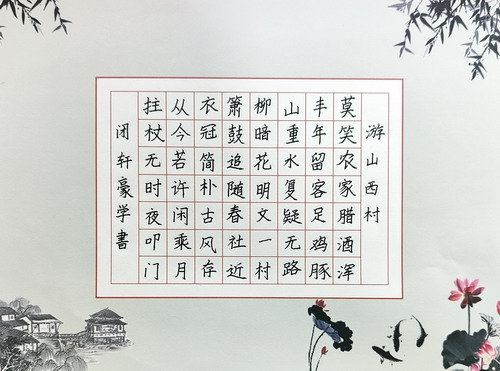 游山西村
莫笑农家腊酒浑
丰年留客足鸡豚
山重水复疑无路
柳暗花明文一村
箫鼓追随春社近
衣冠简朴古风存
从今若许闲乘月
拄杖无时夜叩门
闭轩豪学書